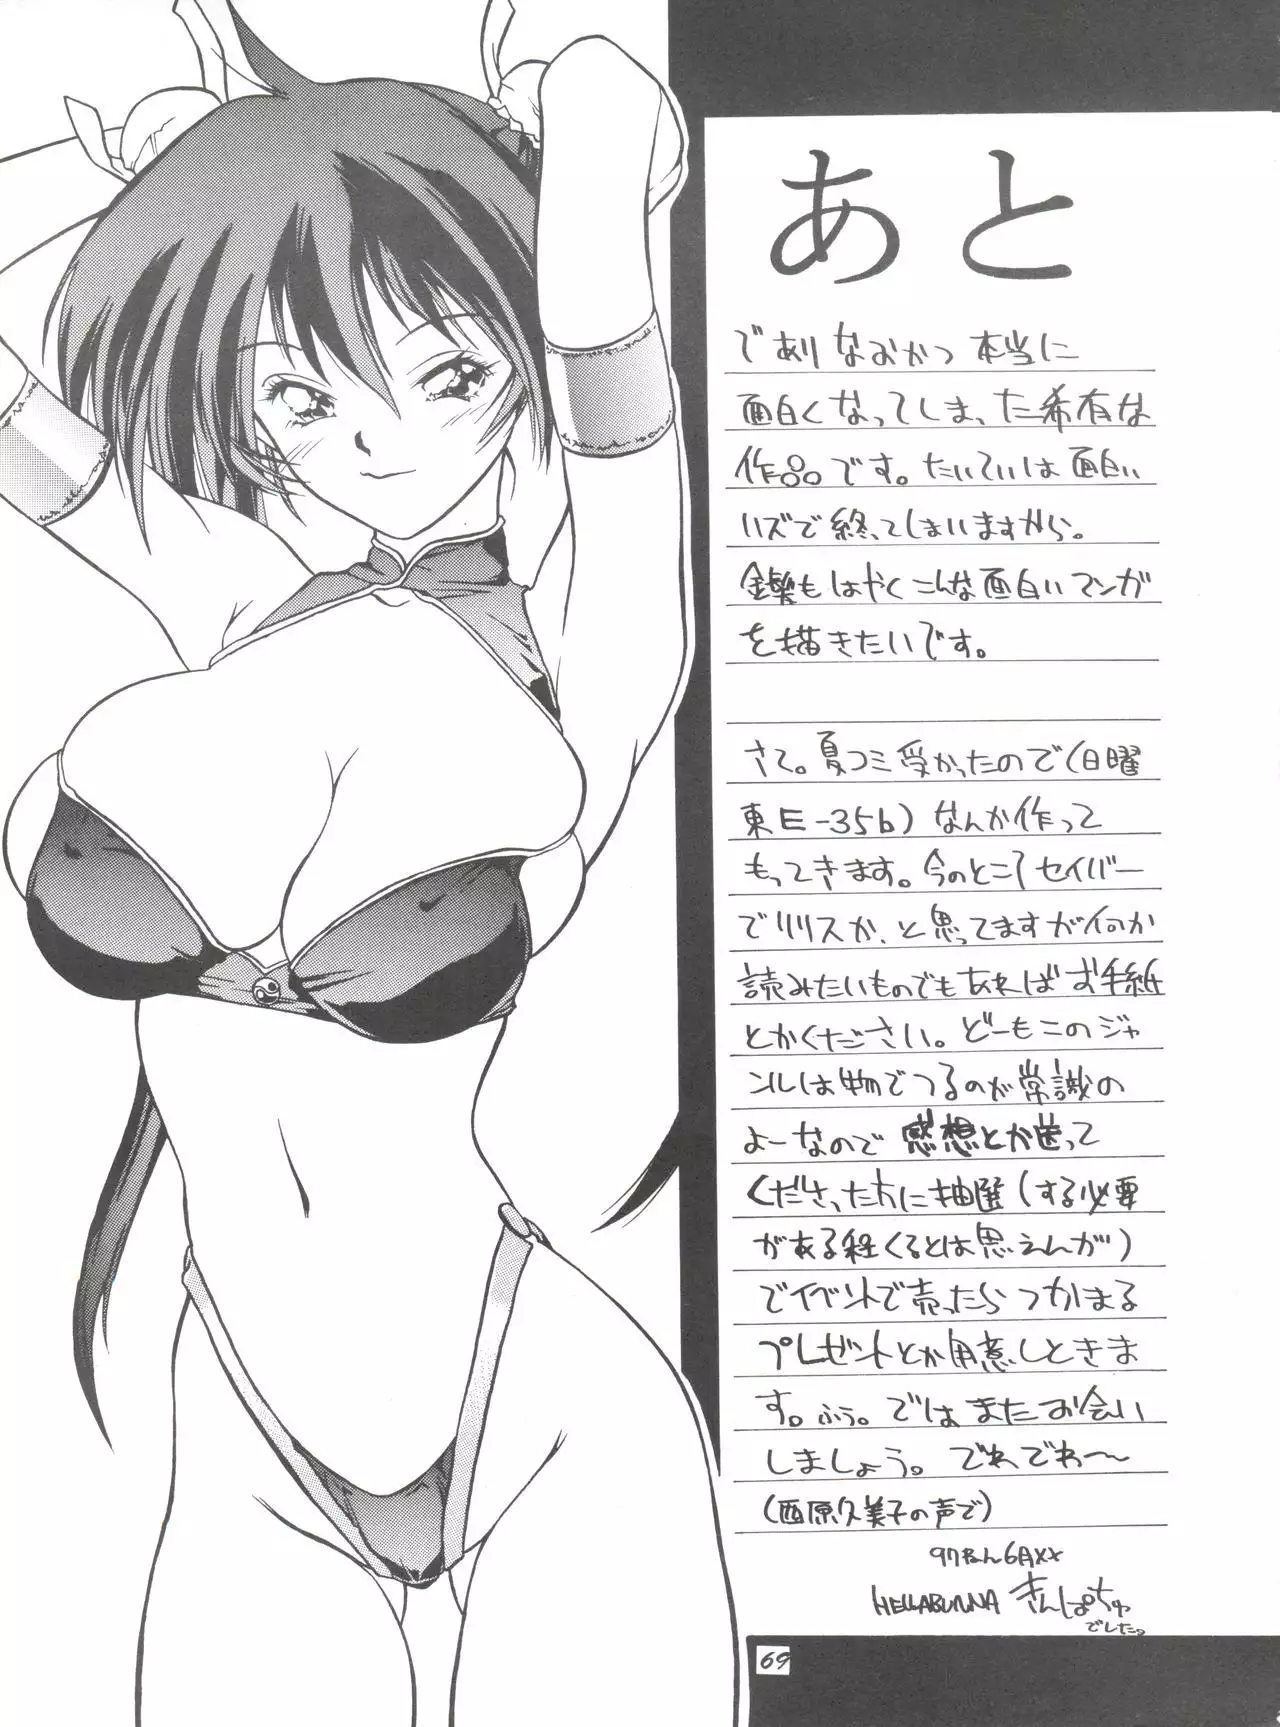 あと
でありなおかつ本当に
面白くなってしまった希有な
作品です。たいていは面白い
ハズで終ってしまいますから。
も はやくこんな面白いマンガ
を描きたいです。
さて。夏コミ受かったので(日曜
東E-35b)なんか作って
もってきます。今のとこ セイバー
でリリスか、と思ってますが何か
読みたいものでもあればお手紙
とかください。どーもこのジャ
ンルは物でつるのが常識の
よーなので 感想とか送って
くださった方に抽選(する必要
がある程くるとは思えんが)
でイベントで売ったらつかまる
プレゼントとか用意しときま
す。ふぅ。ではまたお会い
しましょう。でわでわ〜
(西原久美子の声で)
97ねん6月××
HELLABUNNA きんぱちゅ
でした。
69